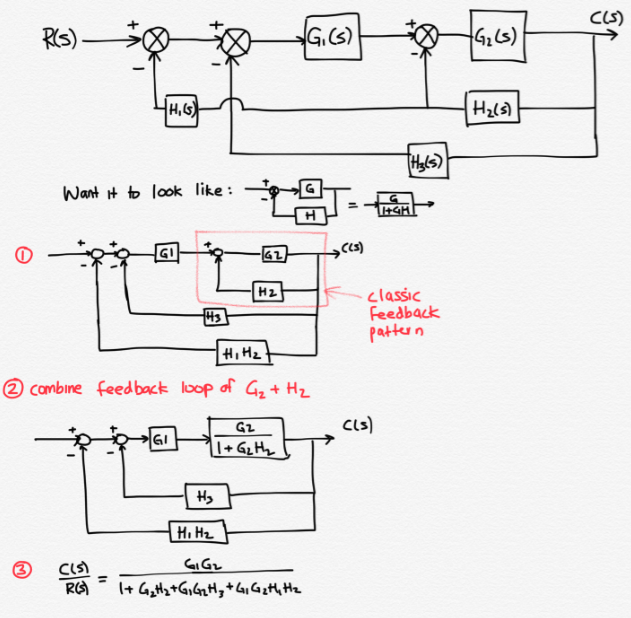 C(s)
R(s) + - + - G₁(s) + - G₂(s)
H₁(s) H₂(s)
H₃(s)
Want it to look like: + - G H = G/1+GH
① + - + - G1 + - G2 C(s)
H2
classic
feedback
pattern
H3
H₁H₂
② combine feedback loop of G₂ + H₂
+ - + - G1 G2/1+G₂H₂ C(s)
H₃
H₁H₂
③ C(s)/R(s) = G₁G₂/1+G₂H₂+G₁G₂H₃+G₁G₂H₁H₂